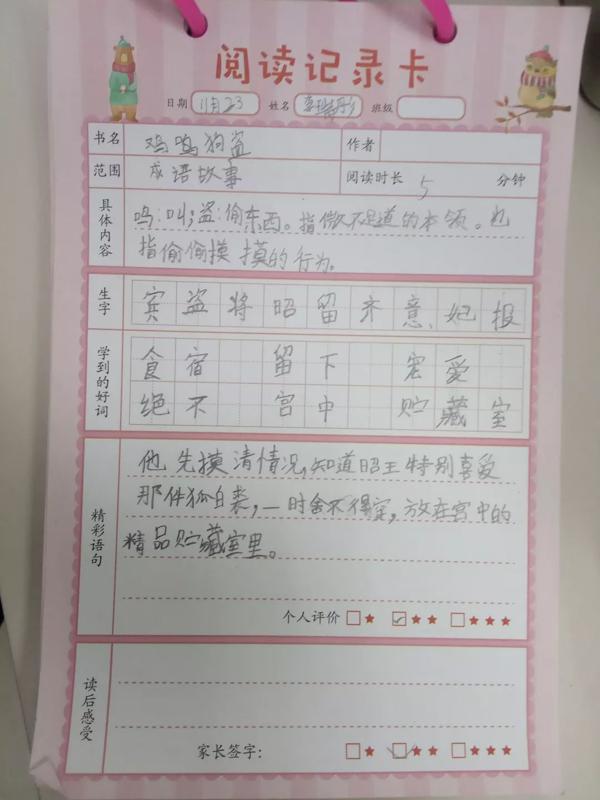 阅读记录卡
日期 11月23 姓名 李瑞彤 班级
书名 鸡鸣狗盗 作者
范围 成语故事 阅读时长 5 分钟
具体内容
鸣:叫;盗:偷东西。指微不足道的本领。也
指偷偷摸摸的行为。
生字 宾盗将昭留齐意妃报
学到的好词
食宿 留下 宠爱
绝不 宫中 贮藏室
精彩语句
他先摸清情况,知道昭王特别喜爱
那件狐白裘,一时舍不得穿,放在宫中的
精品贮藏室里。
个人评价 ★ ★★ ★★★
读后感受
家长签字: ★ ★★ ★★★